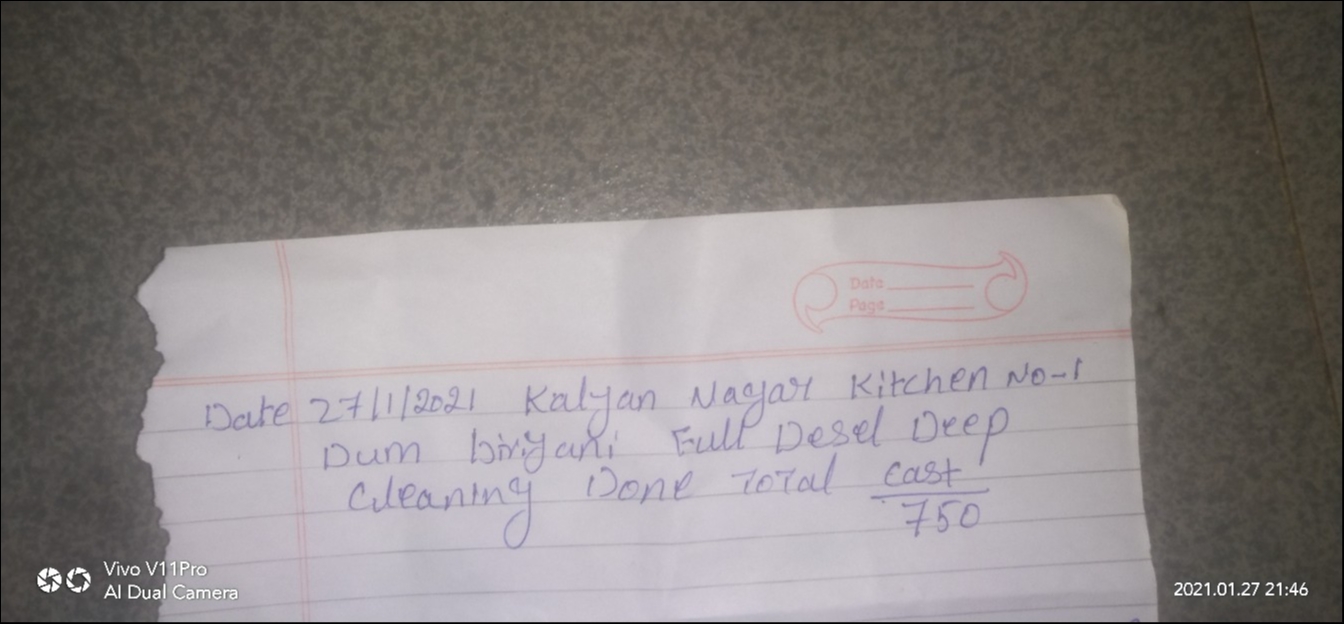 Date
Page
Date 27/1/2021 Kalyan Nagar Kitchen No-1
Dum biryani Full Desel Deep
Cleaning Done Total Cast
750
Vivo V11Pro
AI Dual Camera
2021.01.27 21:46